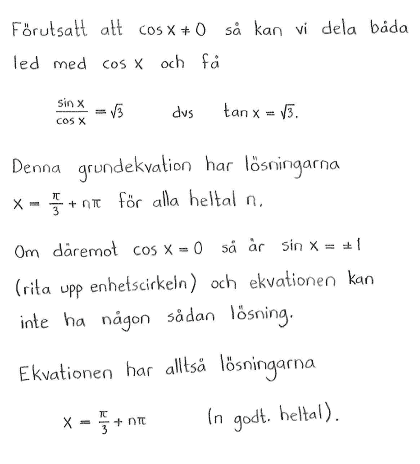 Förutsatt att cos x ≠ 0 så kan vi dela båda
led med cos x och få
sin x / cos x = √3 dvs tan x = √3.
Denna grundekvation har lösningarna
x = π/3 + nπ för alla heltal n.
Om däremot cos x = 0 så är sin x = ±1
(rita upp enhetscirkeln) och ekvationen kan
inte ha någon sådan lösning.
Ekvationen har alltså lösningarna
x = π/3 + nπ (n godt. heltal).